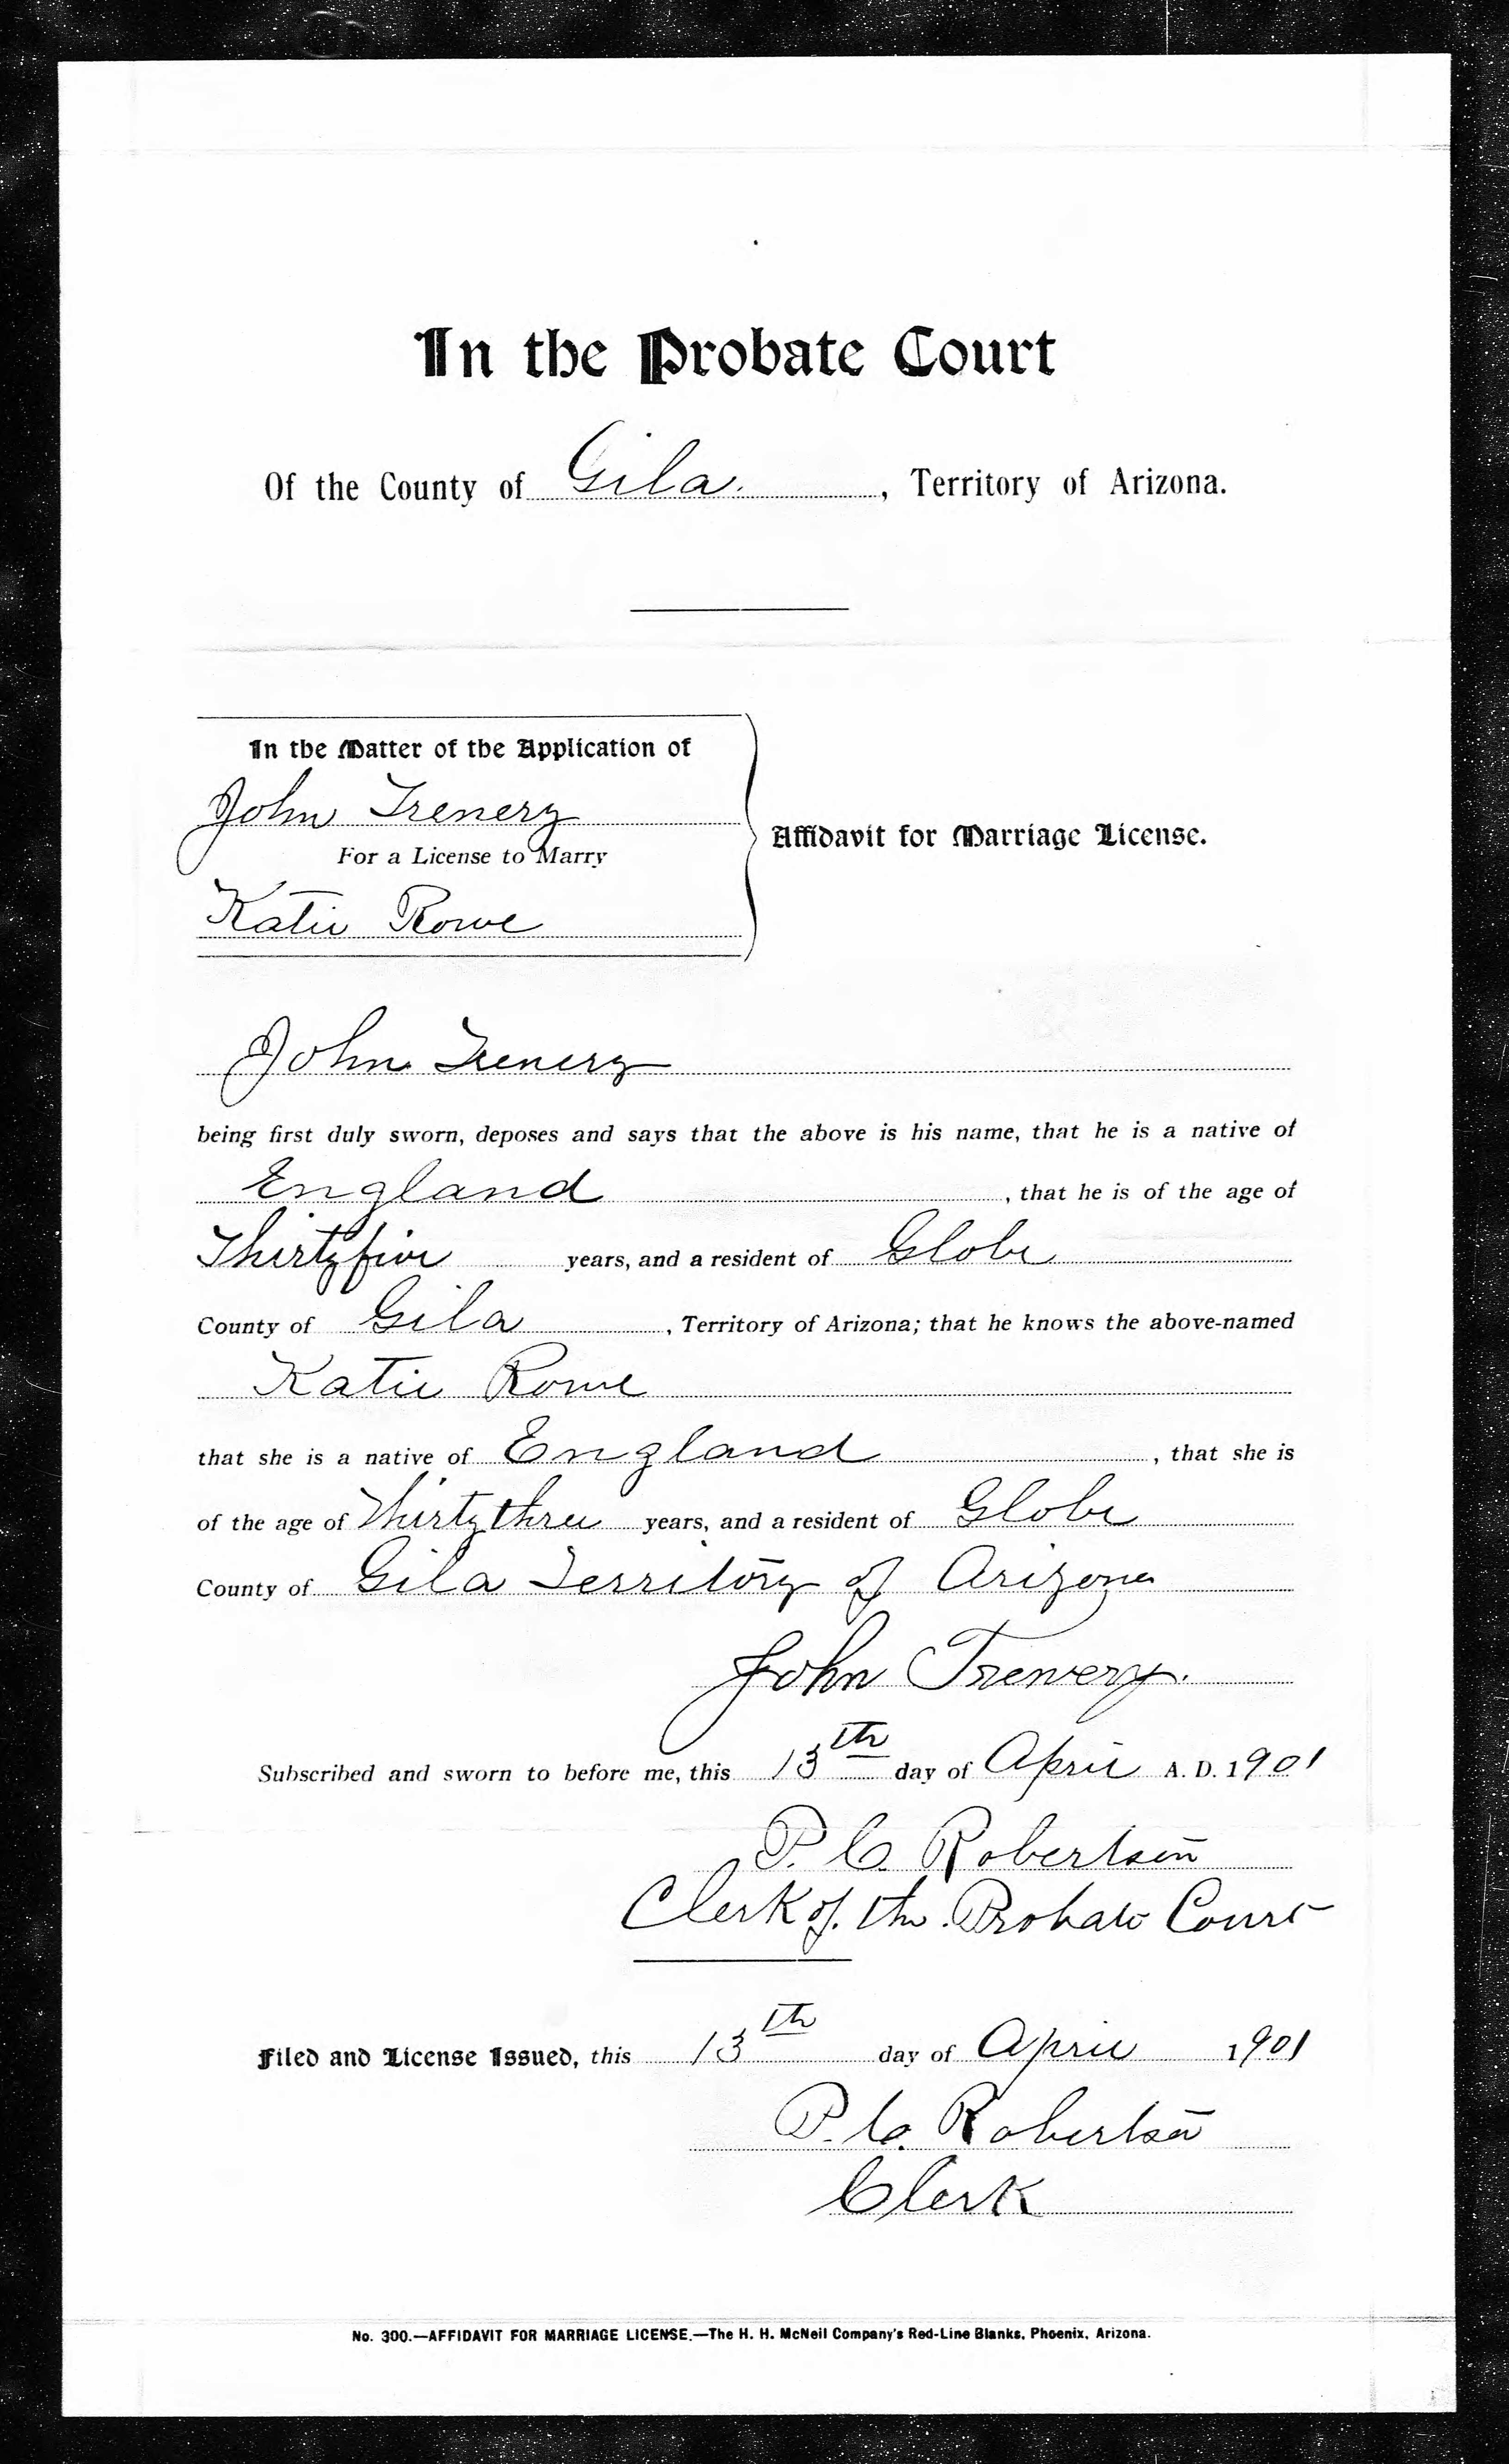 In the Probate Court
Of the County of Gila. , Territory of Arizona.
In the Matter of the Application of
John Trenery
For a License to Marry
Katie Rowe
Affidavit for Marriage License.
John Trenery
being first duly sworn, deposes and says that the above is his name, that he is a native of
England , that he is of the age of
Thirty five years, and a resident of Globe
County of Gila , Territory of Arizona; that he knows the above-named
Katie Rowe
that she is a native of England , that she is
of the age of Thirty three years, and a resident of Globe
County of Gila Territory of Arizona
John Trenery.
Subscribed and sworn to before me, this 13th day of April A. D. 1901
P. C. Robertson
Clerk of the Probate Court
Filed and License Issued, this 13th day of April 1901
P. C. Robertson
Clerk
No. 300.—AFFIDAVIT FOR MARRIAGE LICENSE.—The H. H. McNeil Company's Red-Line Blanks, Phoenix, Arizona.